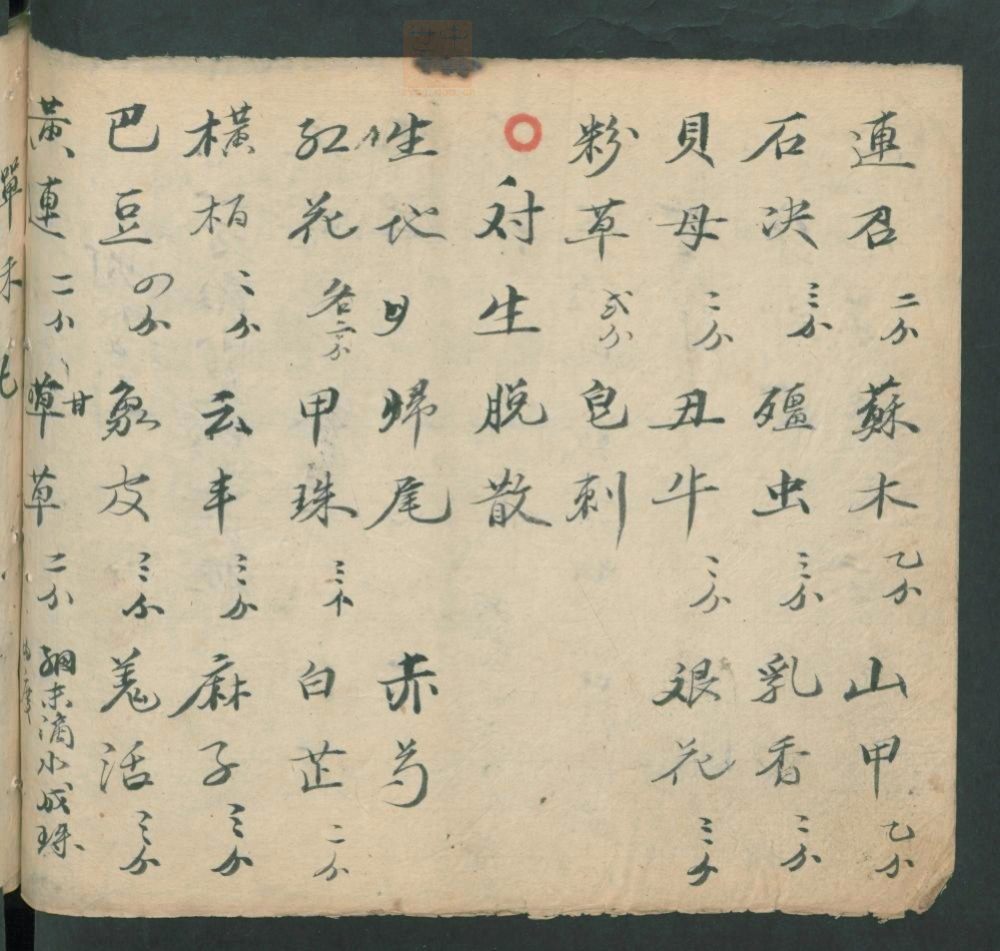 連召 二分 蘇木 乙分 山甲 乙分
石决 三分 殭虫 三分 乳香 二分
貝母 二分 丑牛 三分 艮花 三分
粉草 弍分 皂刺
○对生脱散
生地 歸尾 赤芍
红花 各二分 甲珠 三卜 白芷 二分
横柏 二分 云丰 三分 麻子 三分
巴豆 四分 象皮 三分 羌活 三分
黃連 二分 甘草 二分 細末滴水成珠
單未